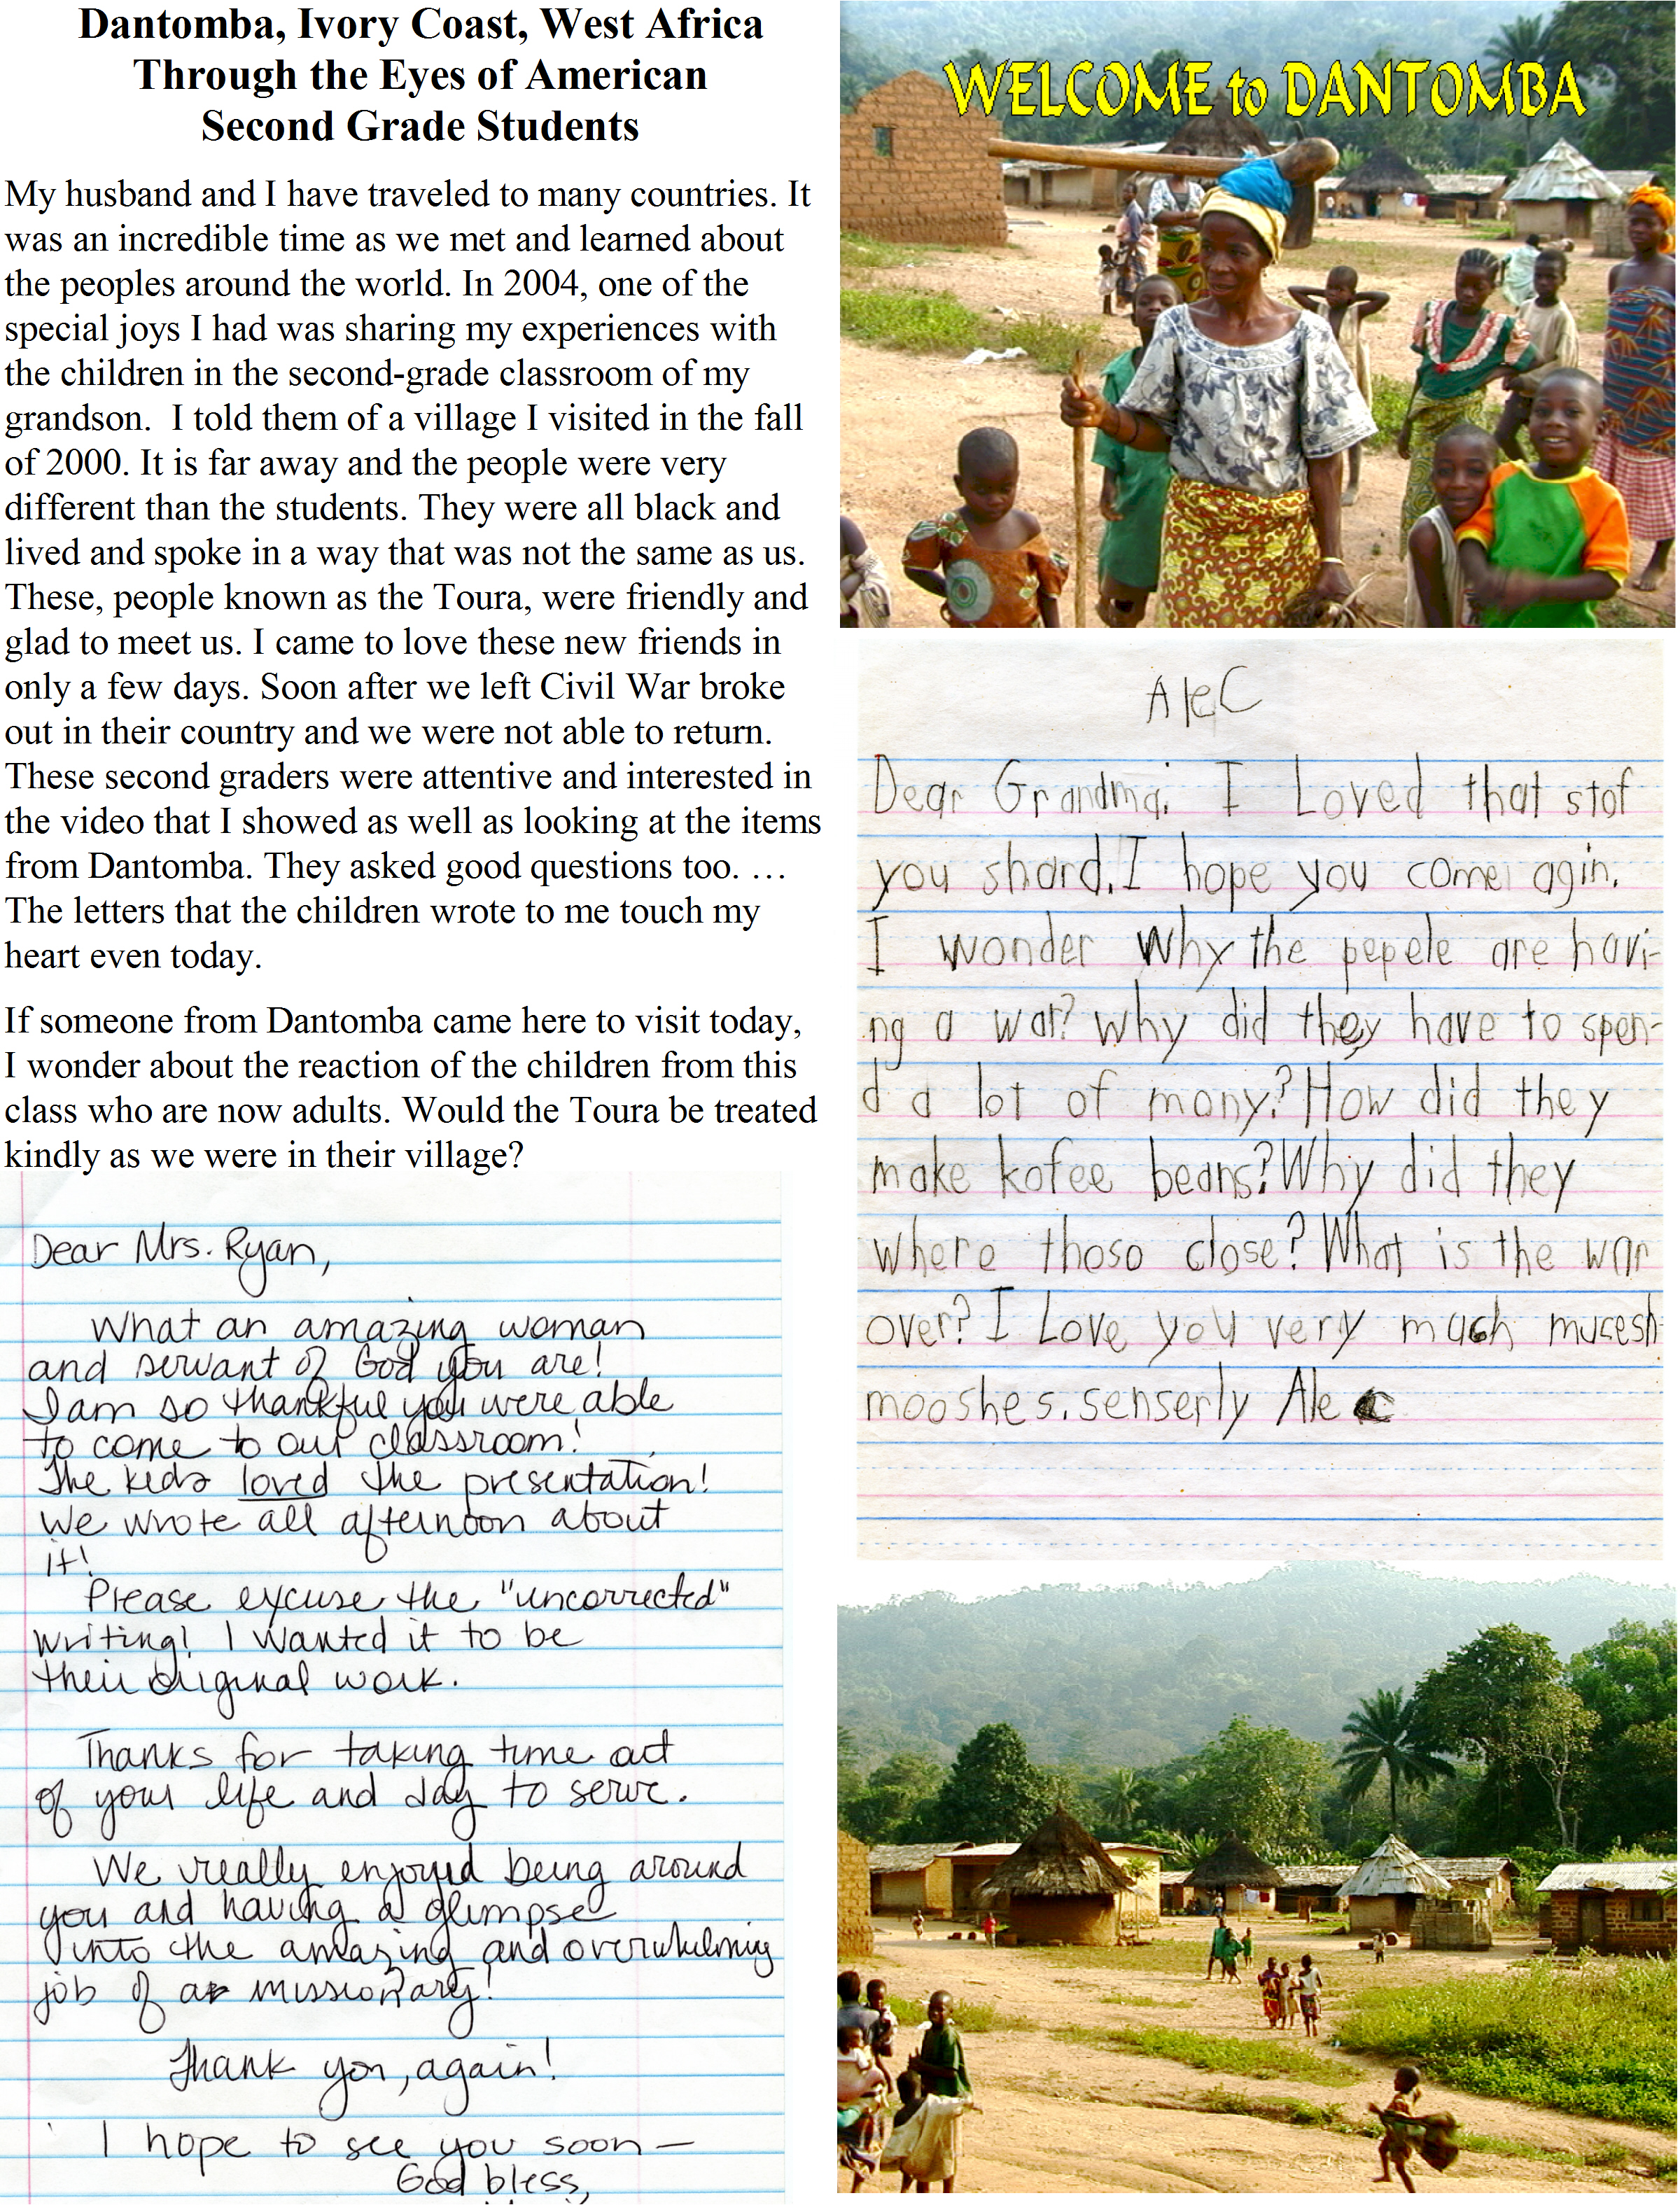 Dantomba, Ivory Coast, West Africa
Through the Eyes of American
Second Grade Students
My husband and I have traveled to many countries. It
was an incredible time as we met and learned about
the peoples around the world. In 2004, one of the
special joys I had was sharing my experiences with
the children in the second-grade classroom of my
grandson.  I told them of a village I visited in the fall
of 2000. It is far away and the people were very
different than the students. They were all black and
lived and spoke in a way that was not the same as us.
These, people known as the Toura, were friendly and
glad to meet us. I came to love these new friends in
only a few days. Soon after we left Civil War broke
out in their country and we were not able to return.
These second graders were attentive and interested in
the video that I showed as well as looking at the items
from Dantomba. They asked good questions too. …
The letters that the children wrote to me touch my
heart even today.
If someone from Dantomba came here to visit today,
I wonder about the reaction of the children from this
class who are now adults. Would the Toura be treated
kindly as we were in their village?
Dear Mrs. Ryan,
What an amazing woman
and servant of God you are!
I am so thankful you were able
to come to our classroom!
The kids loved the presentation!
We wrote all afternoon about
it!
Please excuse the "uncorrected"
writing! I wanted it to be
their original work.
Thanks for taking time out
of your life and day to serve.
We really enjoyed being around
you and having a glimpse
into the amazing and overwhelming
job of a missionary!
Thank you, again!
I hope to see you soon —
God bless,
WELCOME to DANTOMBA
Alec
Dear Grandma, I Loved that stof
you shard. I hope you come agin.
I wonder Why the pepele are havi-
ng a war? Why did they have to spen-
d a lot of mony? How did they
make kofee beans? Why did they
where thoso close? What is the war
over? I Love you very much mucesh
mooshes. senserly Alec